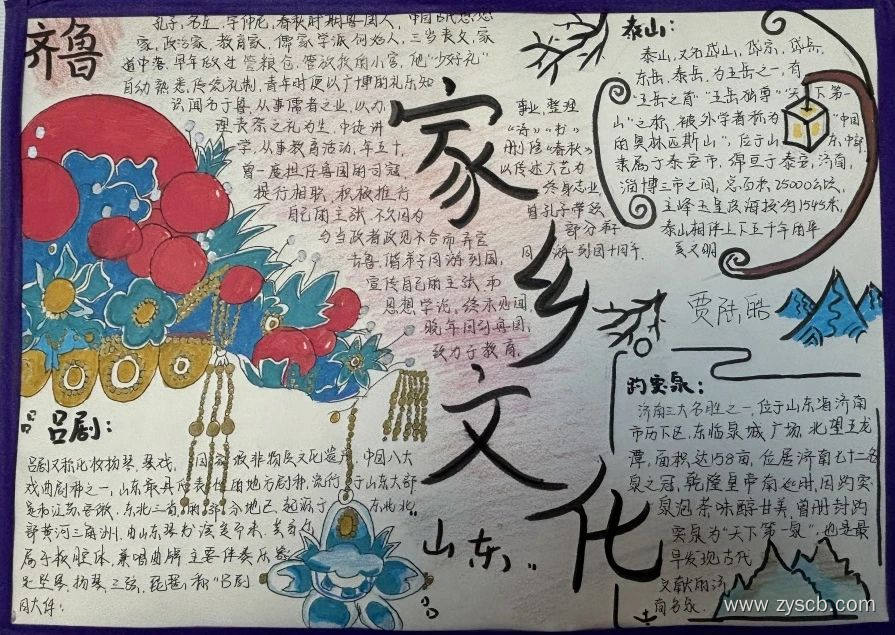 齐鲁
孔子,名丘,字仲尼,春秋时期鲁国人,中国古代思想
家,政治家,教育家,儒家学派创始人,三岁丧父,家
道中落,早年做过管粮仓、管放牧的小官,他"少好礼"
自幼熟悉传统礼制,青年时便以广博的礼乐知
识闻名于鲁,从事儒者之业,以办
理丧祭之礼为生,中徒讲
学,从事教育活动,年五十,
曾一度担任鲁国的司寇
摄行相职,积极推行
自己的主张,不久因为
与当政者政见不合而弃官
去鲁,偕弟子周游列国,
宣传自己的主张和
思想学说,终未见用
晚年回到鲁国,
致力于教育,
事业,整理
"诗""书"
删修"春秋"
以传述六艺为
终身志业,
自孔子带领
部分弟子
周游列国十四年.
家乡文化
山东
泰山:
泰山,又名岱山,岱宗,岱岳,
东岳,泰岳,为五岳之一,有
"五岳之首""五岳独尊""天下第一
山"之称,被外学者称为"中国
的奥林匹斯山",位于山东中部
隶属于泰安市,绵亘于泰安,济南,
淄博三市之间,总面积25000公顷,
主峰玉皇顶海拔约1545米,
泰山相伴上下五千年的华
夏文明
贾陆皓
趵突泉:
济南三大名胜之一,位于山东省济南
市历下区,东临泉城广场,北望五龙
潭,面积达158亩,位居济南七十二名
泉之冠,乾隆皇帝南巡时,因趵突
泉泡茶味醇甘美,曾册封趵
突泉为"天下第一泉",也是最
早发现古代
文献的济
南名泉.
吕
吕剧:
吕剧又称化妆扬琴、琴戏,国家级非物质文化遗产,中国八大
戏曲剧种之一,山东最具代表性的地方剧种,流行于山东大部
是和江苏、安徽、东北三省的部分地区,起源于东北北
部黄河三角洲,由山东琴书演变而来,
属于板腔体,兼唱曲牌,主要伴奏乐器
是坠琴、扬琴、三弦、琵琶,称"吕剧
四大件:
www.zyscb.com